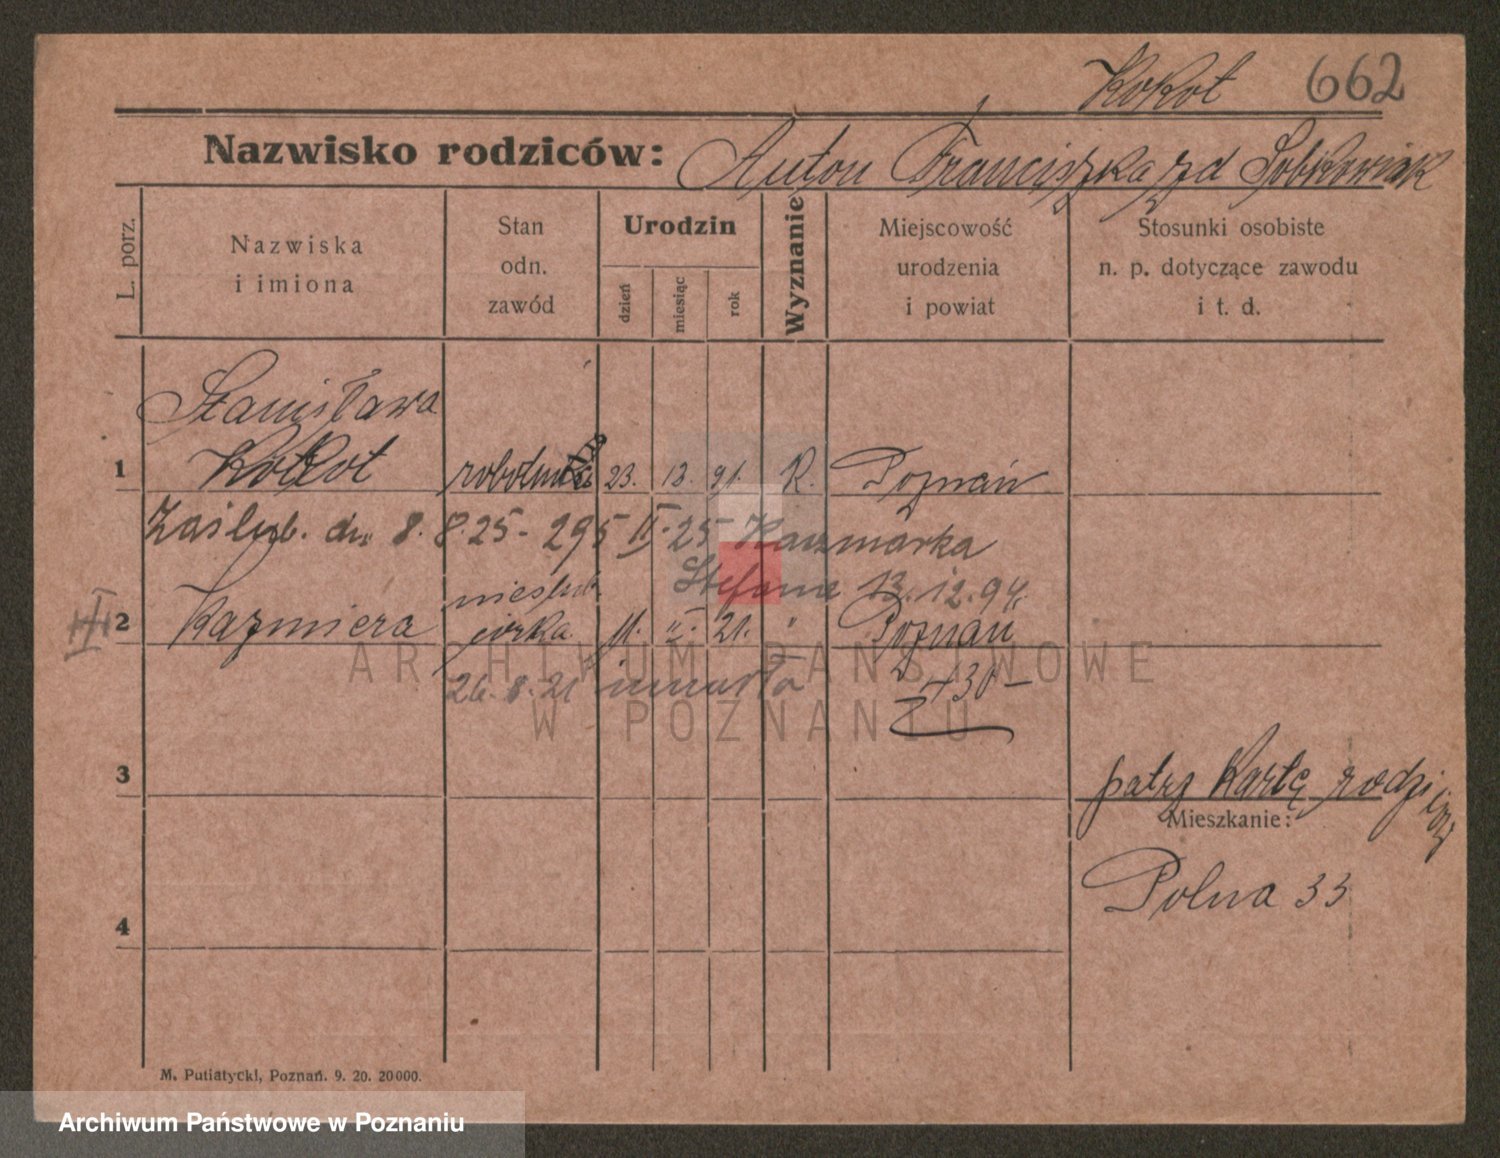 Kokot 662
Nazwisko rodziców: Anton Franciszka zd Sobkowiak
L. porz.
Nazwiska i imiona
Stan odn. zawód
Urodzin
dzień
miesiąc
rok
Wyznanie
Miejscowość urodzenia i powiat
Stosunki osobiste n. p. dotyczące zawodu i t. d.
Stanisława
1 Kokot 23. 91. R. Poznań
Zaślub. dn. 8.8.25 - 295 II - 25 Kaczmarka
nieślub. Stefana 13.12.94.
2 Kazmiera córka 11. II. 21. " Poznań
ARCHIWUM PAŃSTWOWE
26.8.21 umarła 430-
W POZNANIU
3 patrz Kartę rodziny
Mieszkanie:
Polna 33
4
M. Putiatycki, Poznań. 9. 20. 20000.
Archiwum Państwowe w Poznaniu